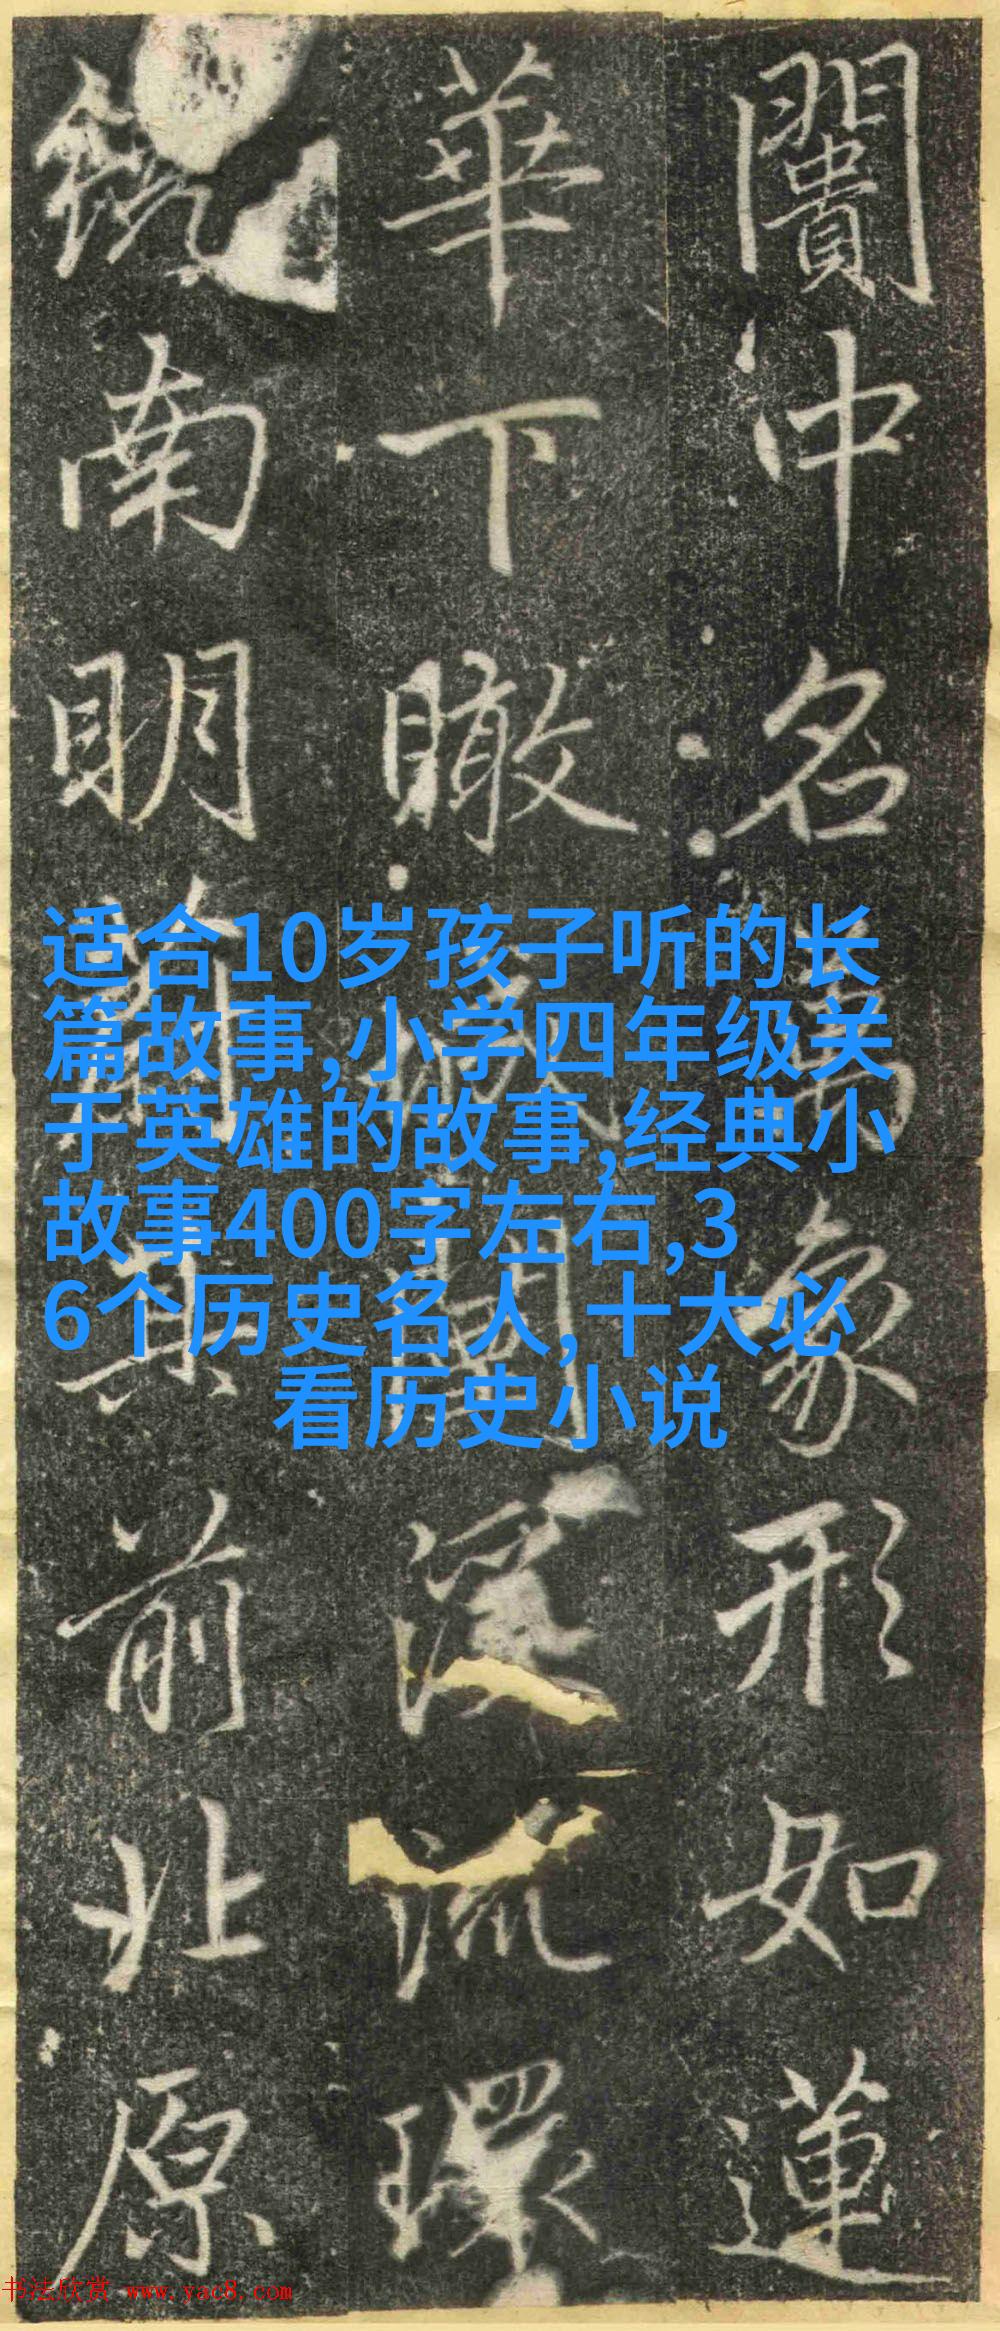 适合10岁孩子听的长
篇故事,小学四年级关
于英雄的故事,经典小
故事400字左右,3
6个历史名人,十大必
看历史小说
闠中名象形如蓮
華下瞰閣深流環
南明前北原
书法欣赏 www.yac8.com